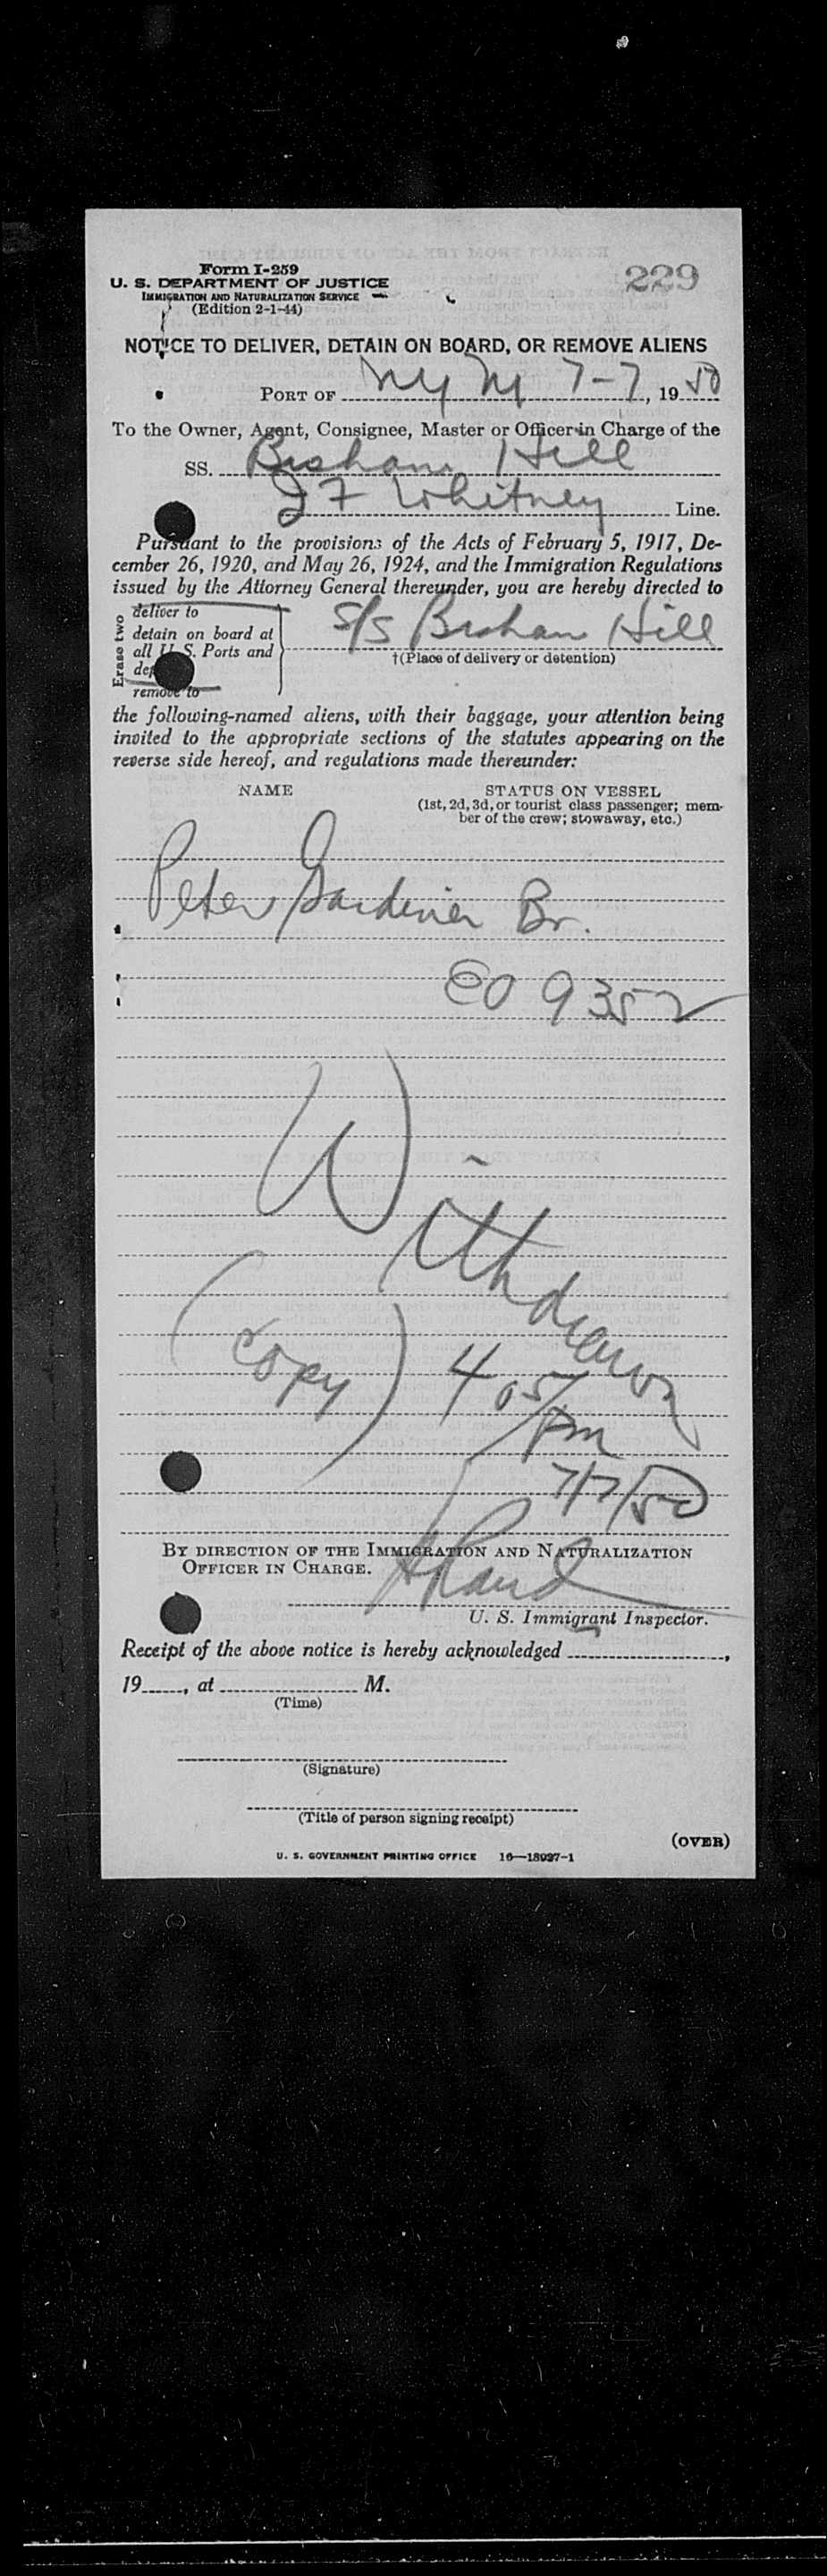 Form I-259
U. S. DEPARTMENT OF JUSTICE
IMMIGRATION AND NATURALIZATION SERVICE
(Edition 2-1-44)
229
NOTICE TO DELIVER, DETAIN ON BOARD, OR REMOVE ALIENS
PORT OF NY NY 7-7, 1950
To the Owner, Agent, Consignee, Master or Officer in Charge of the
SS. Bisham Hill
J F Whitney Line.
Pursuant to the provisions of the Acts of February 5, 1917, De-
cember 26, 1920, and May 26, 1924, and the Immigration Regulations
issued by the Attorney General thereunder, you are hereby directed to
Erase two
deliver to
detain on board at
all U. S. Ports and
remove to
S/S Bisham Hill
†(Place of delivery or detention)
the following-named aliens, with their baggage, your attention being
invited to the appropriate sections of the statutes appearing on the
reverse side hereof, and regulations made thereunder:
NAME STATUS ON VESSEL
(1st, 2d, 3d, or tourist class passenger; mem-
ber of the crew; stowaway, etc.)
Peter Gardiner Br.
EO 9352
Withdrawn
(Copy) 4 05/PM
7/7/50
BY DIRECTION OF THE IMMIGRATION AND NATURALIZATION
OFFICER IN CHARGE.
U. S. Immigrant Inspector.
Receipt of the above notice is hereby acknowledged ,
19 , at M.
(Time)
(Signature)
(Title of person signing receipt)
(OVER)
U. S. GOVERNMENT PRINTING OFFICE 16—18027-1